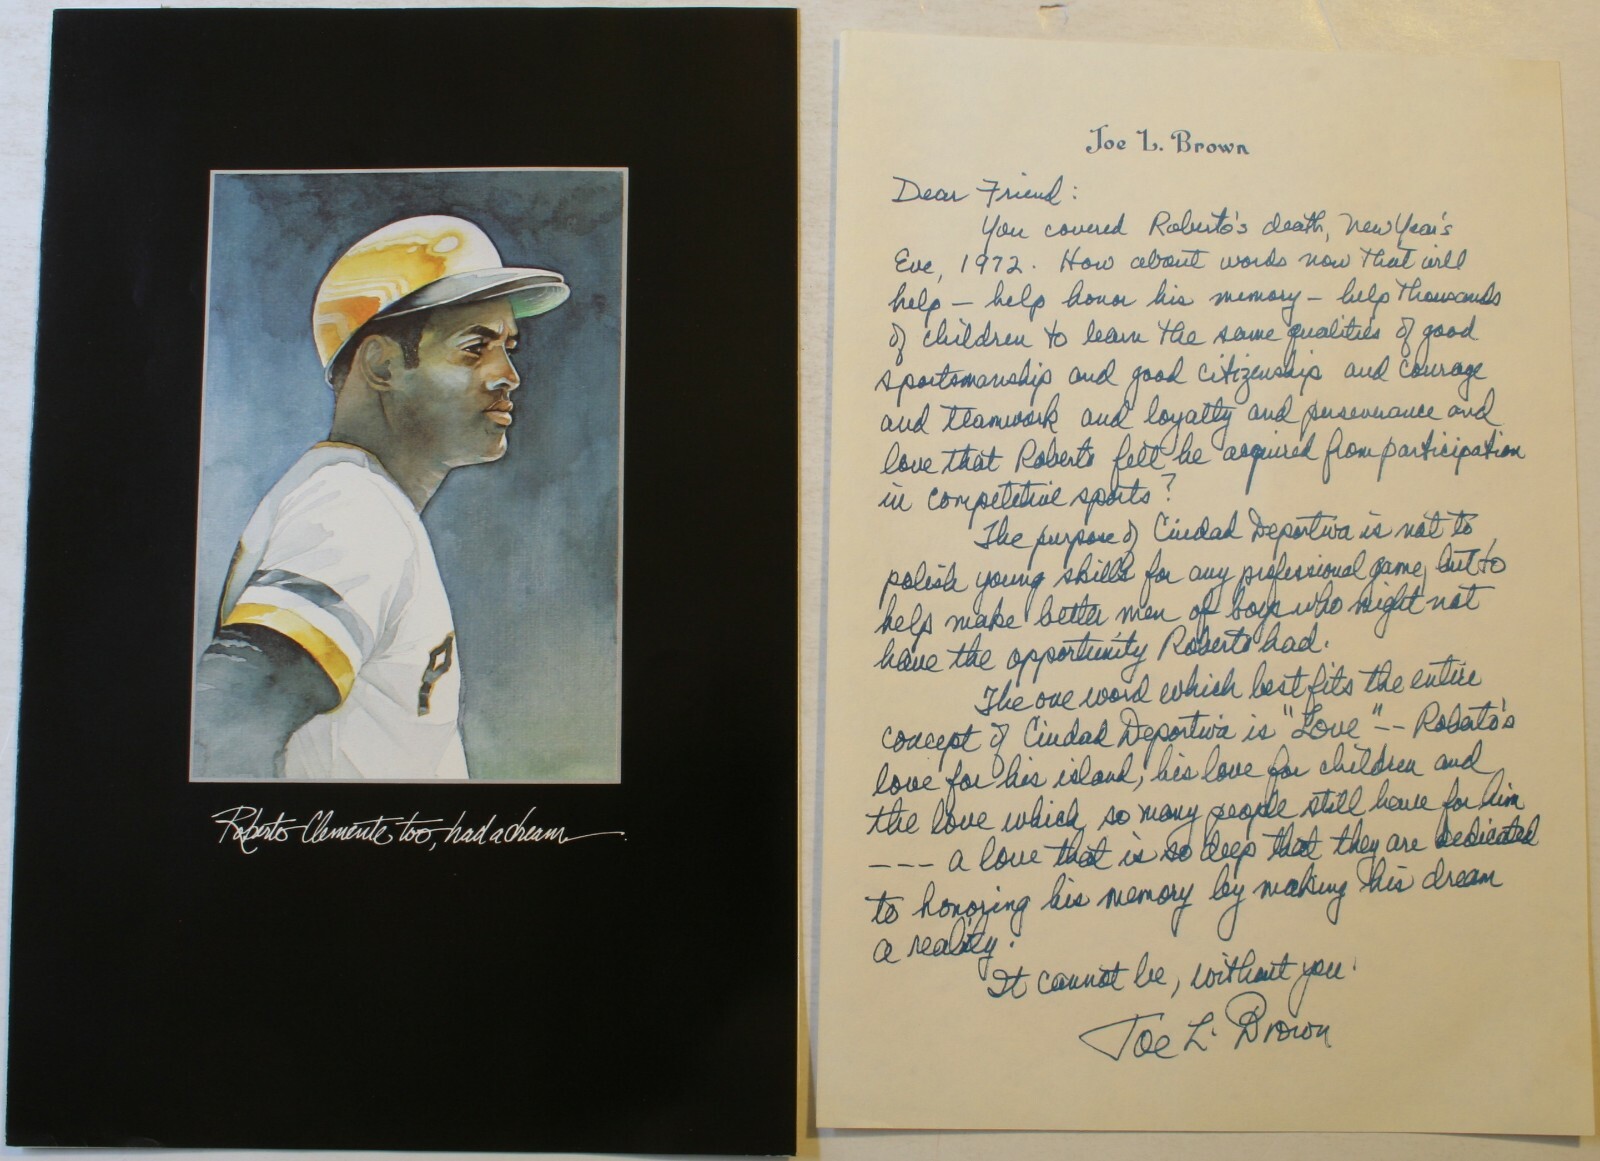 P
Roberto Clemente, too, had a dream.
Joe L. Brown
Dear Friend:
You covered Roberto's death, New Year's
Eve, 1972. How about words now that will
help - help honor his memory - help thousands
of children to learn the same qualities of good
sportsmanship and good citizenship and courage
and teamwork and loyalty and perseverance and
love that Roberto felt he acquired from participation
in competetive sports?
The purpose of Ciudad Deportiva is not to
polish young skills for any professional game, but to
help make better men of boys who might not
have the opportunity Roberto had.
The one word which best fits the entire
concept of Ciudad Deportiva is "Love" -- Roberto's
love for his island, his love for children and
the love which so many people still have for him
--- a love that is so deep that they are dedicated
to honoring his memory by making his dream
a reality.
It cannot be, without you.
Joe L. Brown